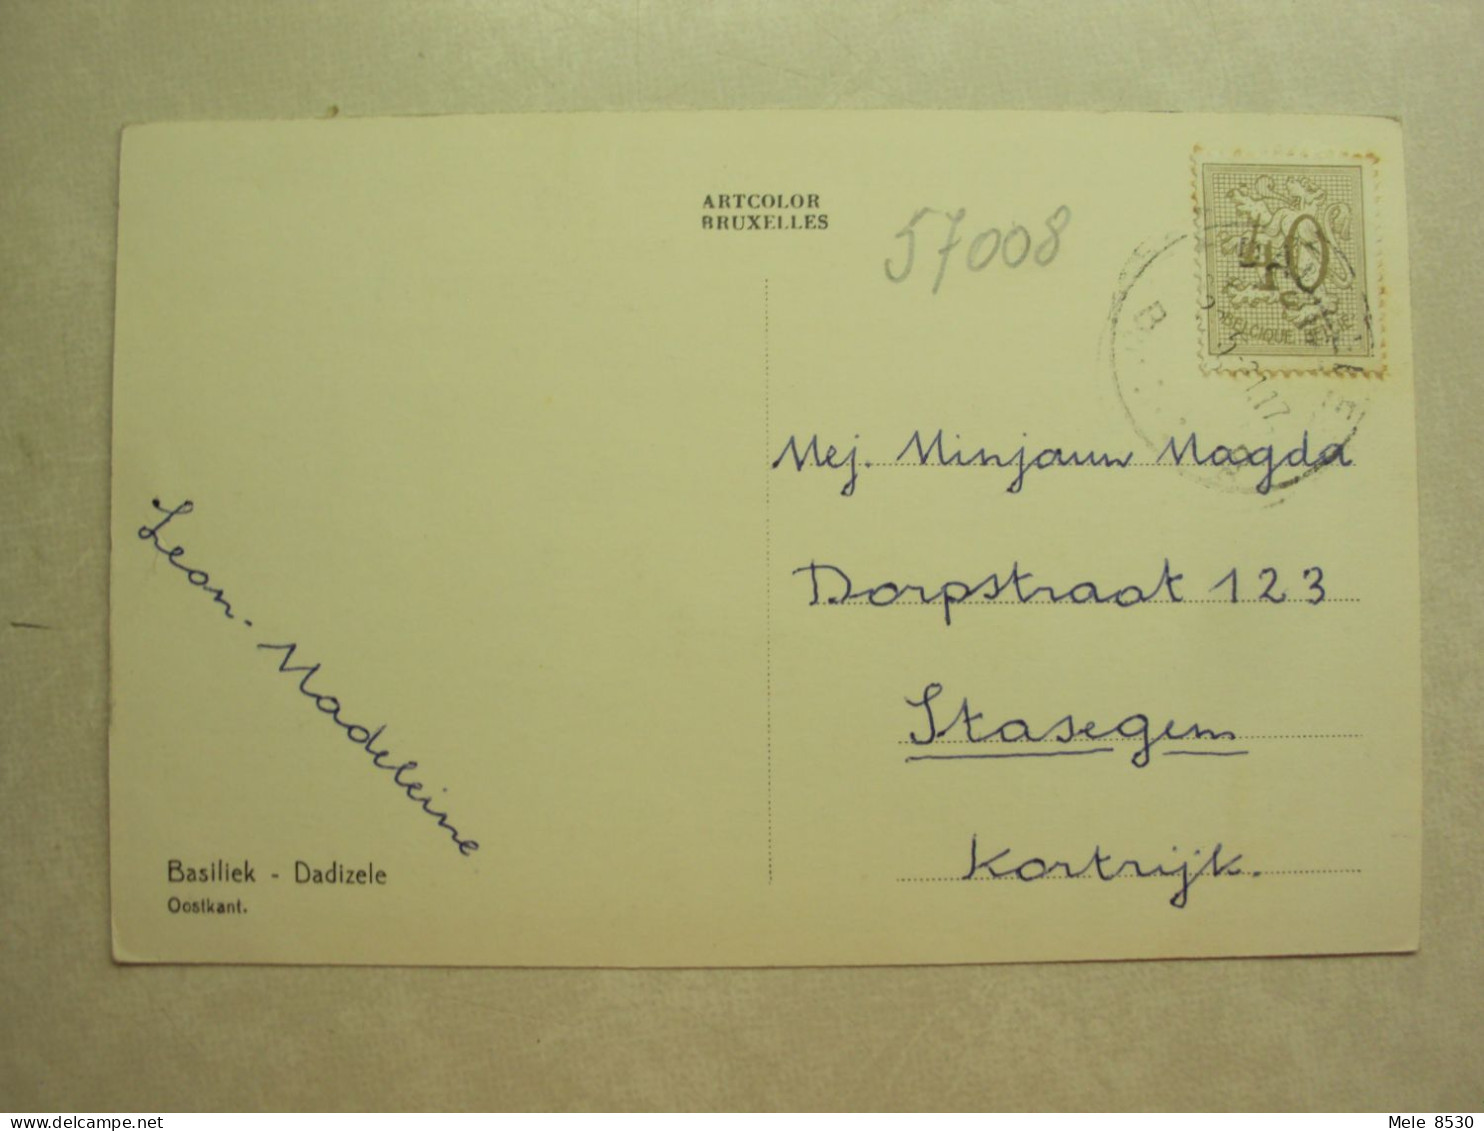 ARTCOLOR
BRUXELLES
57008
40
BELGIQUE BELGIË
B
Mej. Minjauw Magda
Dorpstraat 123
Stasegem
Kortrijk.
Leon. Madeleine
Basiliek - Dadizele
Oostkant.
Mele 8530